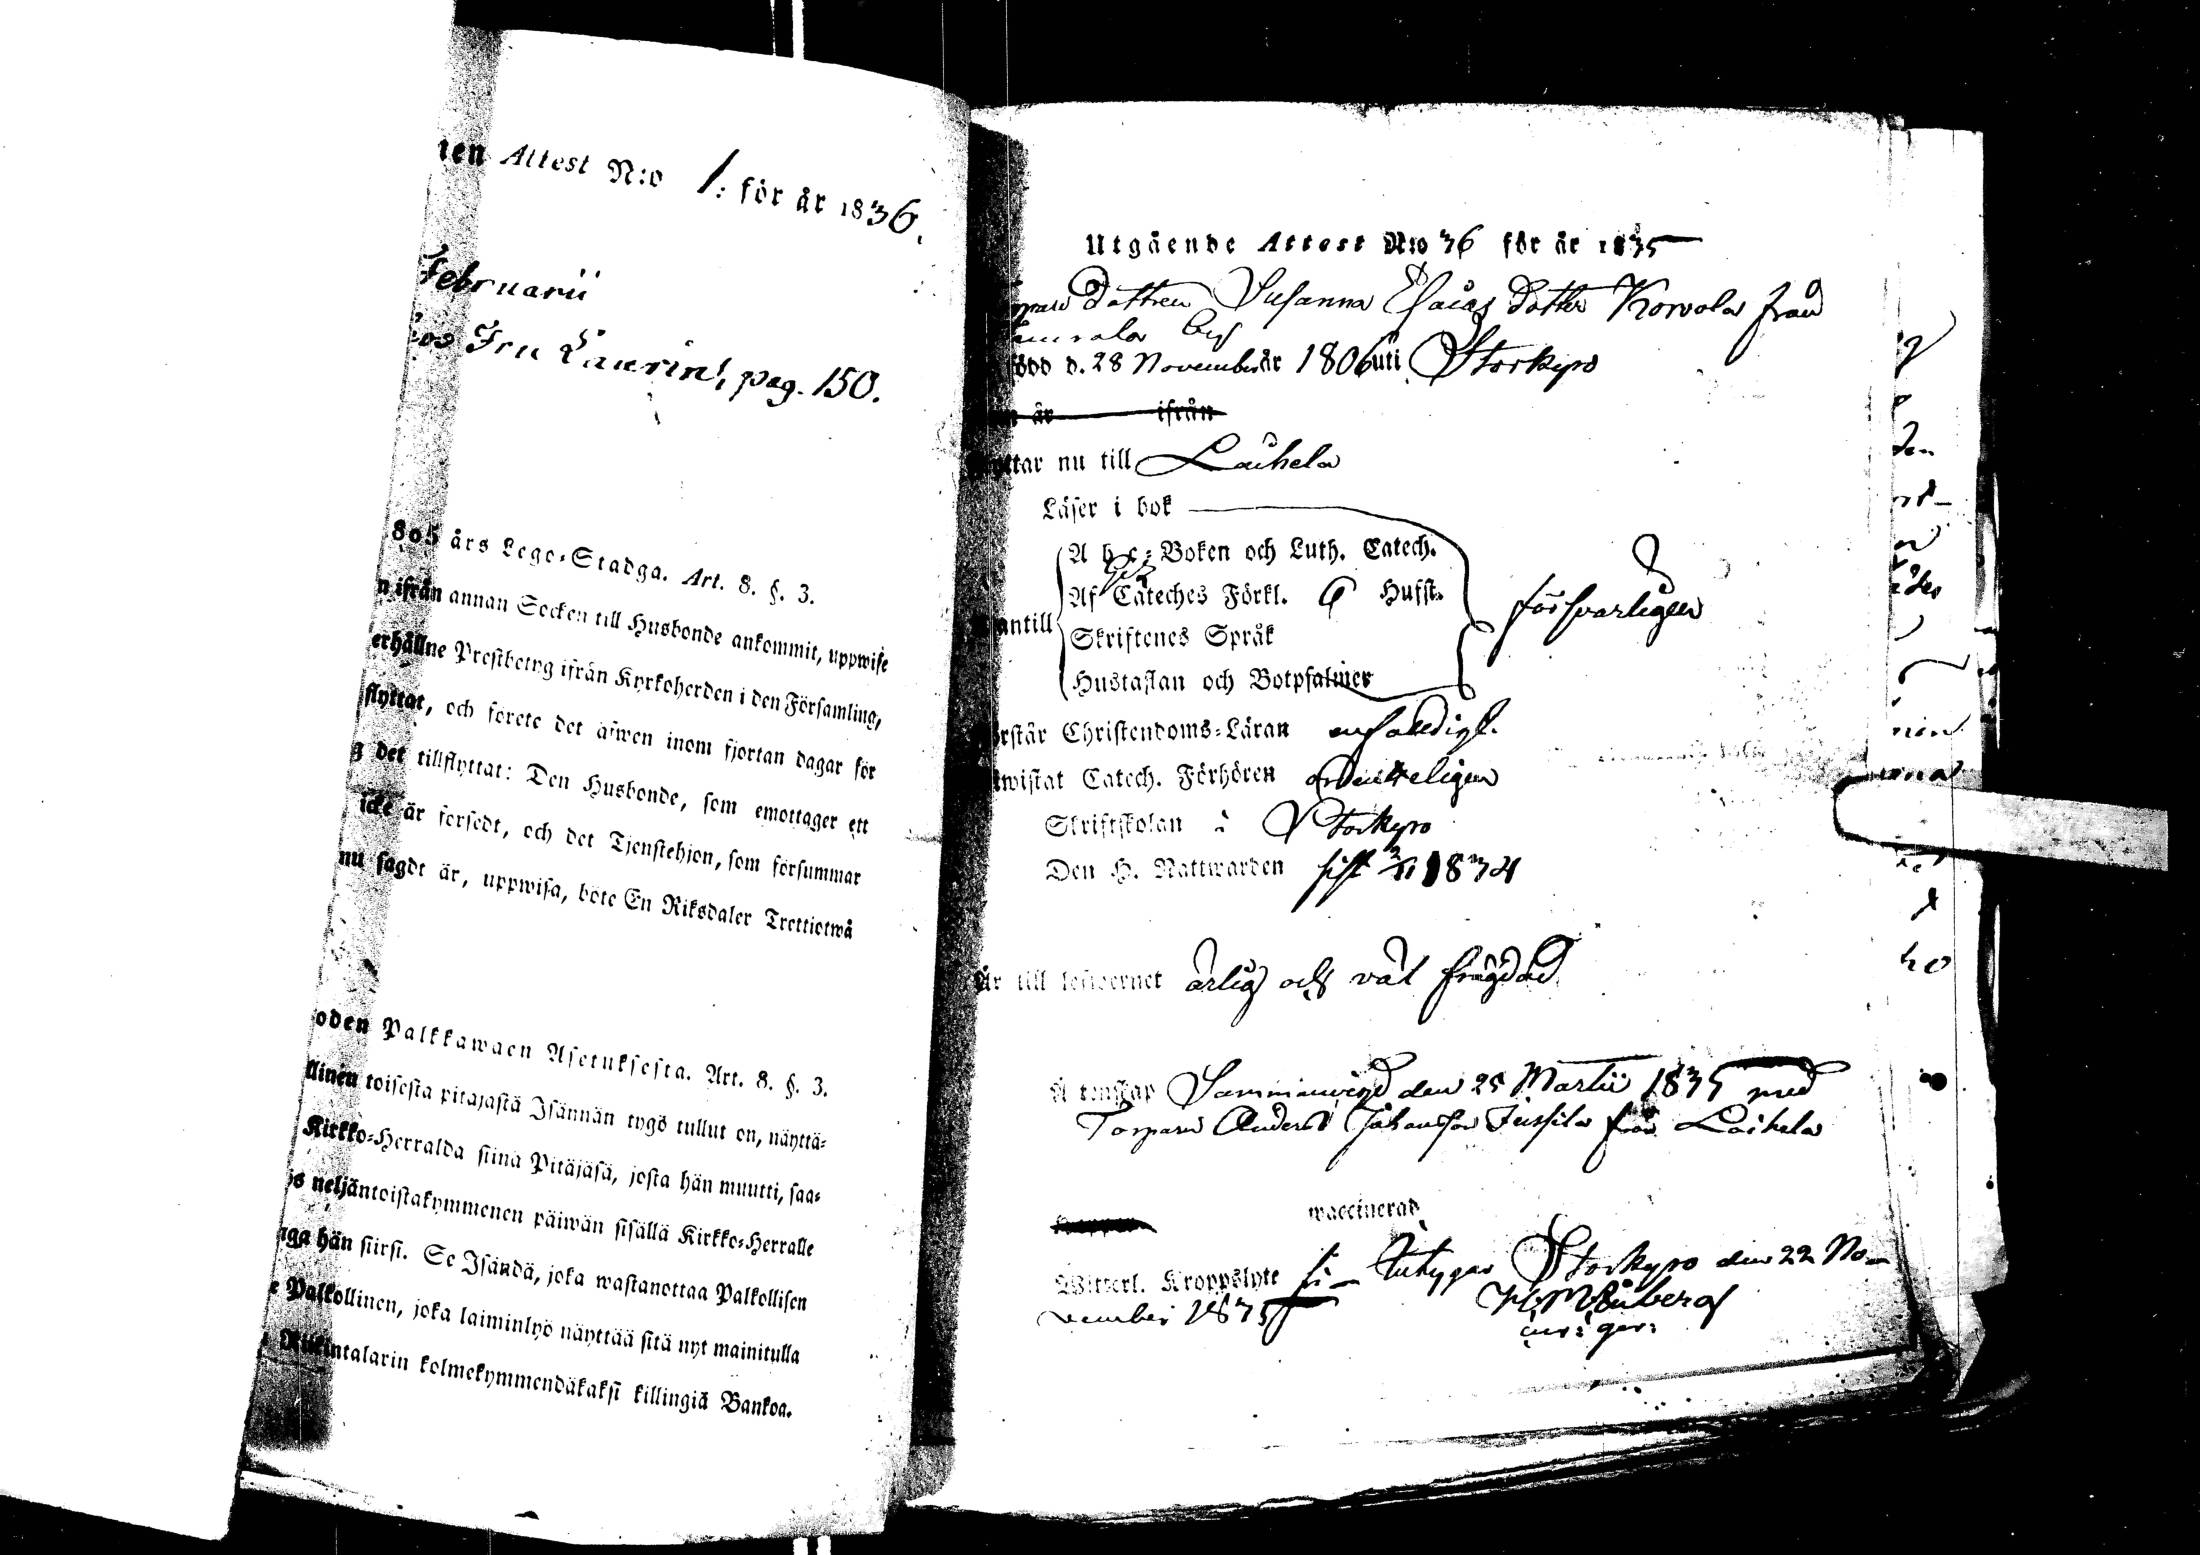 ten Attest N:o 1: för år 1836.
Februarii
hos Fru Laurin, pag. 150.
805 års Lego-Stadga. Art. 8. §. 3.
n ifrån annan Socken till Husbonde ankommit, uppwise
erhållne Prestbetyg ifrån Kyrkoherden i den Församling,
flyttat, och förete det äfwen inom fjortan dagar för
g det tillflyttat: Den Husbonde, som emottager ett
icke är försedt, och det Tjenstehjon, som försummar
nu sagdt är, uppwisa, böte En Riksdaler Trettiotwå
oden Palkkawäen Asetuksesta. Art. 8. §. 3.
llinen toisesta pitäjästä Isännän tygö tullut on, näyttä-
Kirkko-Herralda siinä Pitäjäsä, josta hän muutti, saa-
ös neljäntoistakymmenen päiwän sisällä Kirkko-Herralle
nga hän siirsi. Se Isändä, joka wastanottaa Palkollisen
e Palkollinen, joka laiminlyö näyttää sitä nyt mainitulla
Riikintalarin kolmekymmendäkaksi killingiä Bankoa.
Utgående Attest N:o 36 för år 1835
Dottren Susanna Esaias Dotter Korvola från
by
född d. 28 November år 1806 uti Storkyro
n år ifrån
yttar nu till Laihela
Läser i bok
A b c-Boken och Luth. Catech.
Af Cateches Förkl. 6 Hufst.
antill
Skriftenes Språk
försvarligen
Hustaflan och Botpsalmer
örstår Christendoms-Läran enfaldigt.
wistat Catech. Förhören ordenteligen
Skriftskolan i Storkyro
Den H. Nattwarden sist 2/11 1834
Är till lefwernet ärlig och väl frägdad
Ägtenskap Sammanvigd den 25 Martii 1835 med
Torparn Anders Johansson Jussila från Laihela
Koppor waccinerad
Witterl. Kroppslyte fri – Betygar Storkyro den 22 No-
vember 1835